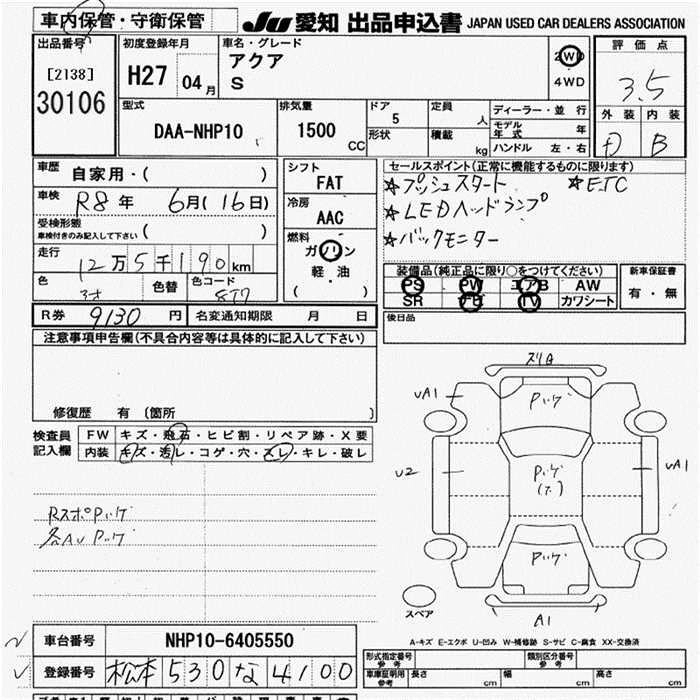 車内保管・守衛保管
JU 愛知 出品申込書 JAPAN USED CAR DEALERS ASSOCIATION
出品番号
[2138]
30106
初度登録年月
H27 04月
車名・グレード
アクア
S
2WD
4WD
評価点
3.5
外装 内装
D B
型式
DAA-NHP10
排気量
1500 CC
ドア
5
形状
定員
人
積載
kg
ディーラー・並行
モデル年式 年
ハンドル 左・右
車歴
自家用・( )
車検
R8年 6月(16日)
受検形態
車検付きのみ記入して下さい ( )
走行
12万5千190km
色
色替
色コード
シフト
FAT
冷房
AAC
燃料
ガソリン
軽・油
( )
セールスポイント(正常に機能するものに限ります)
☆プッシュスタート ☆ETC
☆LEDヘッドランプ
☆バックモニター
装備品(純正品に限り○をつけてください)
PS PW エアB AW
SR ナビ TV カワシート
新車保証書
有・無
後日品
R券 9130円
名変通知期限 月 日
注意事項申告欄(不具合内容等は具体的に記入して下さい)
修復歴 有〔箇所 〕
検査員記入欄
FW キズ・飛石・ヒビ割・リペア跡・X要
内装 キズ・汚レ・コゲ・穴・スレ・キレ・破レ
RスポPハゲ
各AV Pハゲ
ズリキズ
Pハゲ
UA1
U2
Pハゲ
UA1
Pハゲ
A1
スペア
A-キズ E-エクボ U-凹み W-補修跡 S-サビ C-腐食 XX-交換済
車台番号 NHP10-6405550
登録番号 松本 530 な 4100
型式指定番号 参考
類別区分番号 参考
車庫証明用 参考 長さ cm 幅 cm 高さ cm